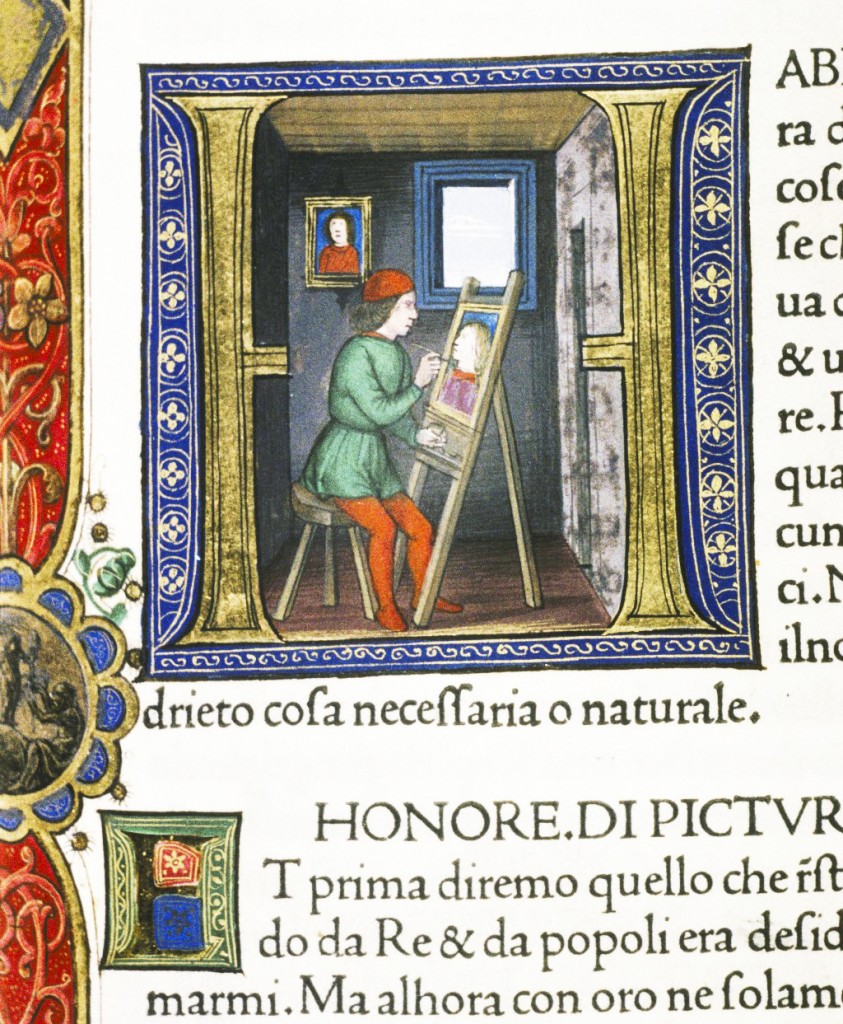 HAB
ra
coſe
ſe
ua
& u
re.
qua
cun
ci.N
ilno
drieto coſa neceſſaria o naturale.
HONORE.DI PICTVR
ET prima diremo quello che r̃ſt
do da Re & da popoli era deſid
marmi. Ma alhora con oro ne ſolam